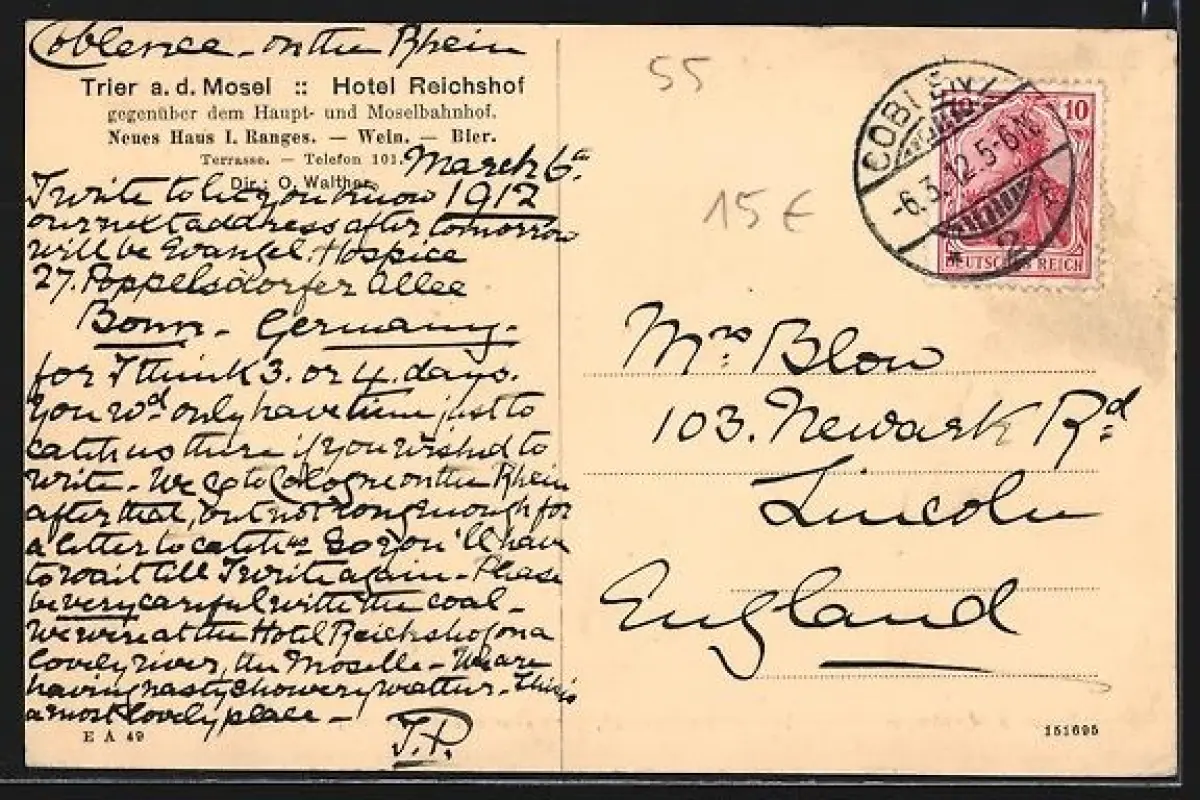 Coblence - on the Rhein
Trier a. d. Mosel :: Hotel Reichshof
gegenüber dem Haupt- und Moselbahnhof.
Neues Haus I. Ranges. — Wein. — Bier.
Terrasse. — Telefon 101.
Dir.: O. Walther.
March 6th
1912
I write to let you know
our next address after tomorrow
will be Evangel. Hospice
27. Poppelsdorfer Allee
Bonn - Germany -
for I think 3. or 4. days.
You wd only have time just to
catch us there if you wished to
write - We go to Cologne on the Rhein
after that, but not long enough for
a letter to catch us So you'll have
to wait till I write again - Please
be very careful with the coal -
We were at the Hotel Reichshof on a
lovely river, the Moselle - We are
having nasty showery weather - This is
a most lovely place -
J.P.
E A 49
55
15 €
COBLENZ
-6.3.12.5-6N.
* 2
10
DEUTSCHES REICH
Mrs Blow
103. Newark Rd
Lincoln
England
151695